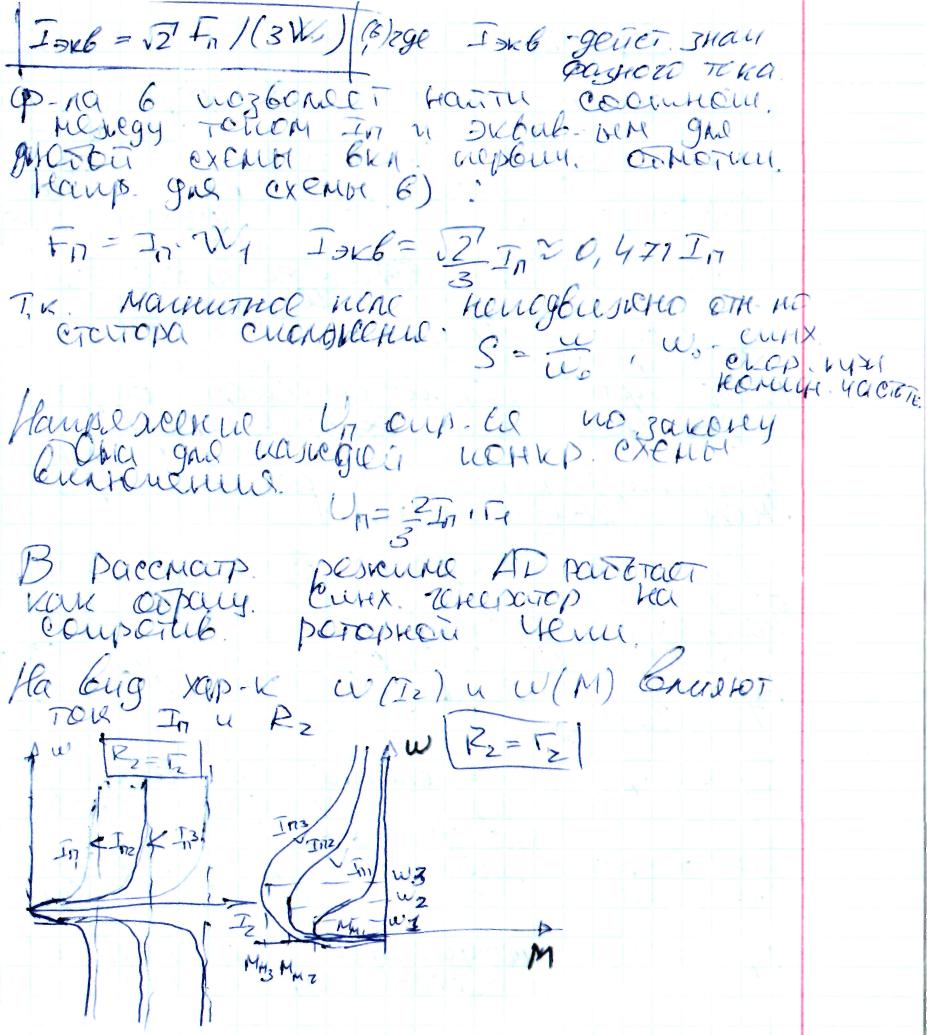 Iэкв = √2 Fп / (3W₁) (6), где Iэкв - дейст. знач
фазного тока.
Ф-ла 6 позволяет найти соотнош.
между током Iп и эквив-ым для
любой схемы вкл. первич. обмотки.
Напр. для схемы б) :
Fп = Iп · W₁ Iэкв = √2/3 Iп ≈ 0,471 Iп
Т.к. магнитное поле неподвижно отн-но
статора скольжение. S = w/w₀ , w₀ - синх.
скор. при
номин. частоте.
Напряжение Uп опр-ся по закону
Ома для каждой конкр. схемы
включения.
Uп = 2/3 Iп · r₁
В рассматр. режиме АД работает
как обращ. синх. генератор на
сопротив. роторной цепи.
На вид хар-к w(I₂) и w(M) влияют
ток Iп и R₂
w R₂ = r₂ w R₂ = r₂
Iп₁ < Iп₂ < Iп3 Iп3 > Iп2 > Iп1
w3
w2
w1
I₂ Mм₁
Mм3 Mм2 M